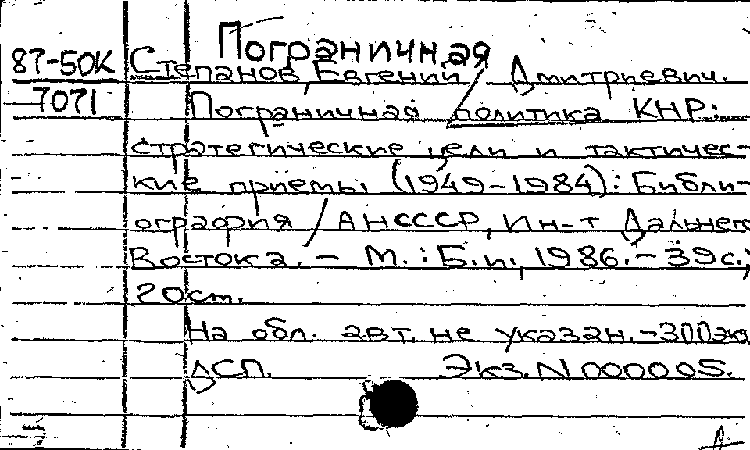 Пограничная
87-50К Степанов, Евгений Дмитриевич.
7071 Пограничная политика КНР:
стратегические цели и тактичес-
кие приемы (1949-1984): Библи-
ография / АН СССР, Ин-т Дальнего
Востока. - М.: Б.и., 1986. - 39с.;
20см.
На обл. авт. не указан. - 300эк
ДСП. Экз. N 000005.